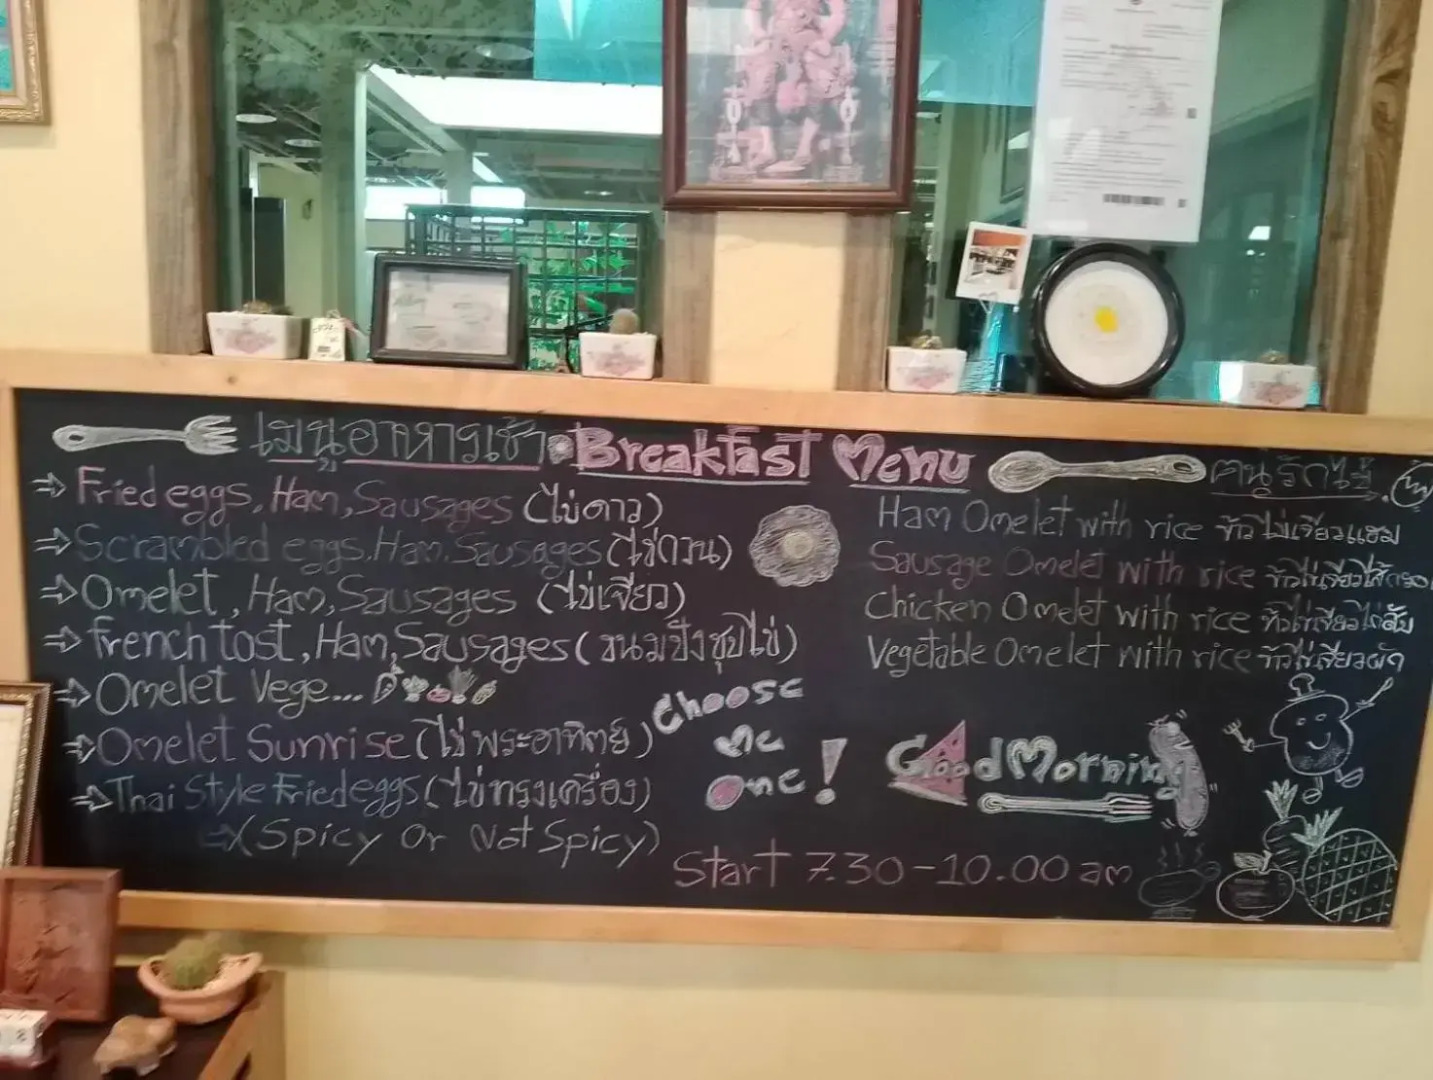 เมนูอาหารเช้า Breakfast Menu
คนรักไข่
Fried eggs, Ham, Sausages (ไข่ดาว)
Scrambled eggs, Ham, Sausages (ไข่กวน)
Omelet, Ham, Sausages (ไข่เจียว)
french tost, Ham, Sausages (ขนมปังชุบไข่)
Omelet Vege...
Omelet Sunrise (ไข่พระอาทิตย์)
Thai Style Fried eggs (ไข่ทรงเครื่อง)
(Spicy Or Not Spicy)
Choose
me
one!
Ham Omelet with rice ข้าวไข่เจียวแฮม
Sausage Omelet with rice ข้าวไข่เจียวไส้กรอก
Chicken Omelet with rice ข้าวไข่เจียวไก่สับ
Vegetable Omelet with rice ข้าวไข่เจียวผัก
Good Morning
Start 7.30-10.00 am